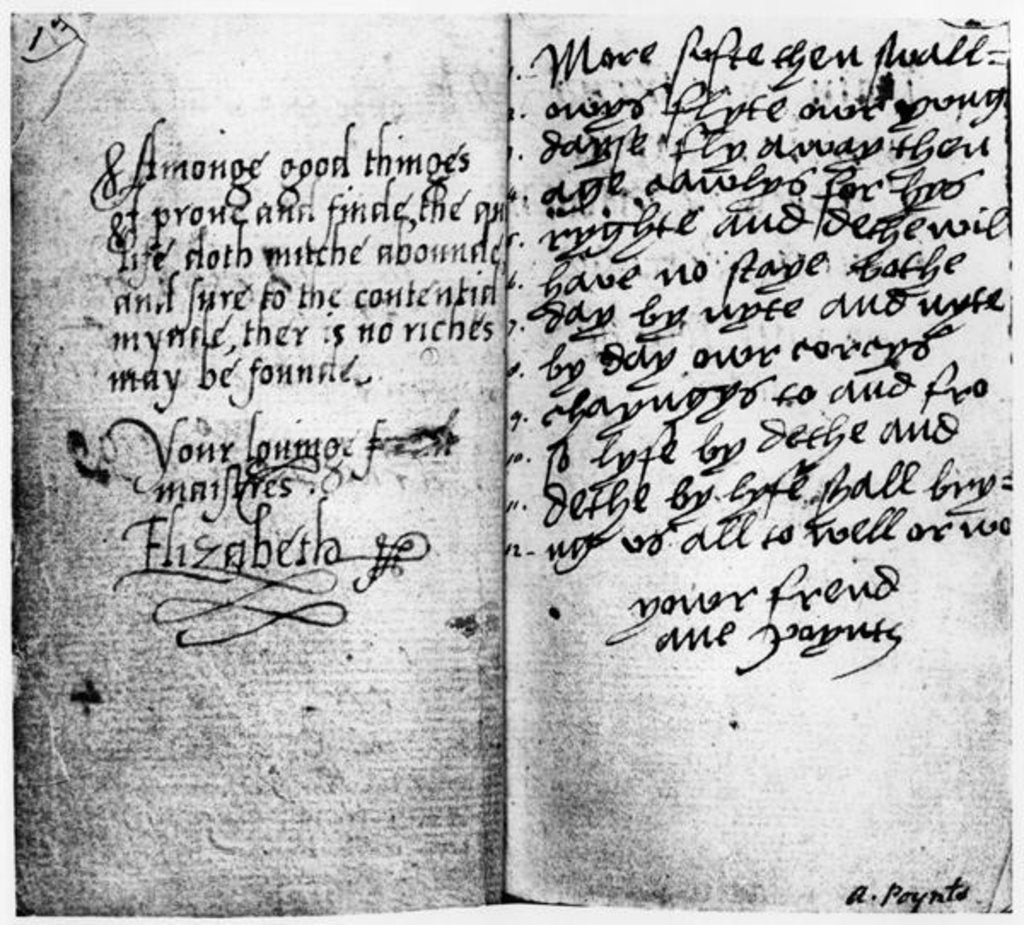 1
Amonge good thinges
I proue and finde, the qu
life doth mutche abounde,
and sure to the contentid
mynde, ther is no riches
may be founde.
Your louinge
maistres.
Elizabeth
1. More swfte then swall=
2. owys flyte owr yong
3. dayse fly away then
4. age cawlys for hys
5. ryghte and dethe wil
6. have no staye bothe
7. day by nyte and nyte
8. by day owr corcys
9. chayngys to and fro
10. so lyfe by dethe and
11. dethe by lyfe shall bry=
12. ng us all to well or wo
yowr frend
ane poynts
A. Poynts